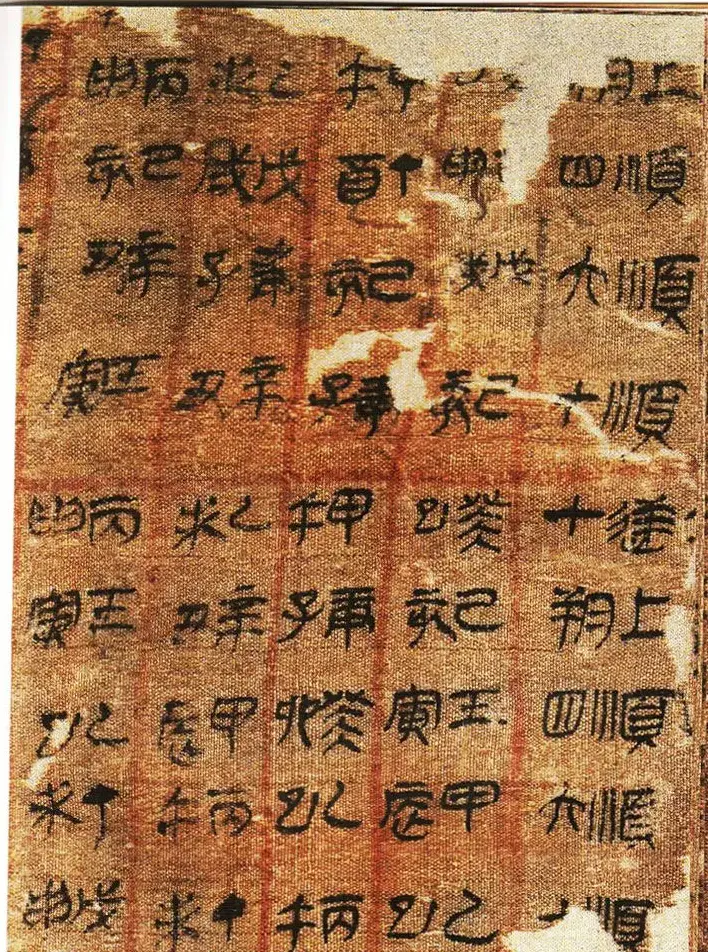 上朔 甲午 乙未 丙申
順四 申 丁酉 戊戌 己亥
順六 戊戌 己亥 庚子 辛丑
順十 己亥 庚子 辛丑 壬寅
十 癸巳 甲午 乙未 丙申
上朔 己亥 庚子 辛丑 壬寅
順四 壬寅 癸卯 甲辰 乙巳
順六 甲辰 乙巳 丙午 丁未
順 乙巳 丙午 丁未 戊申